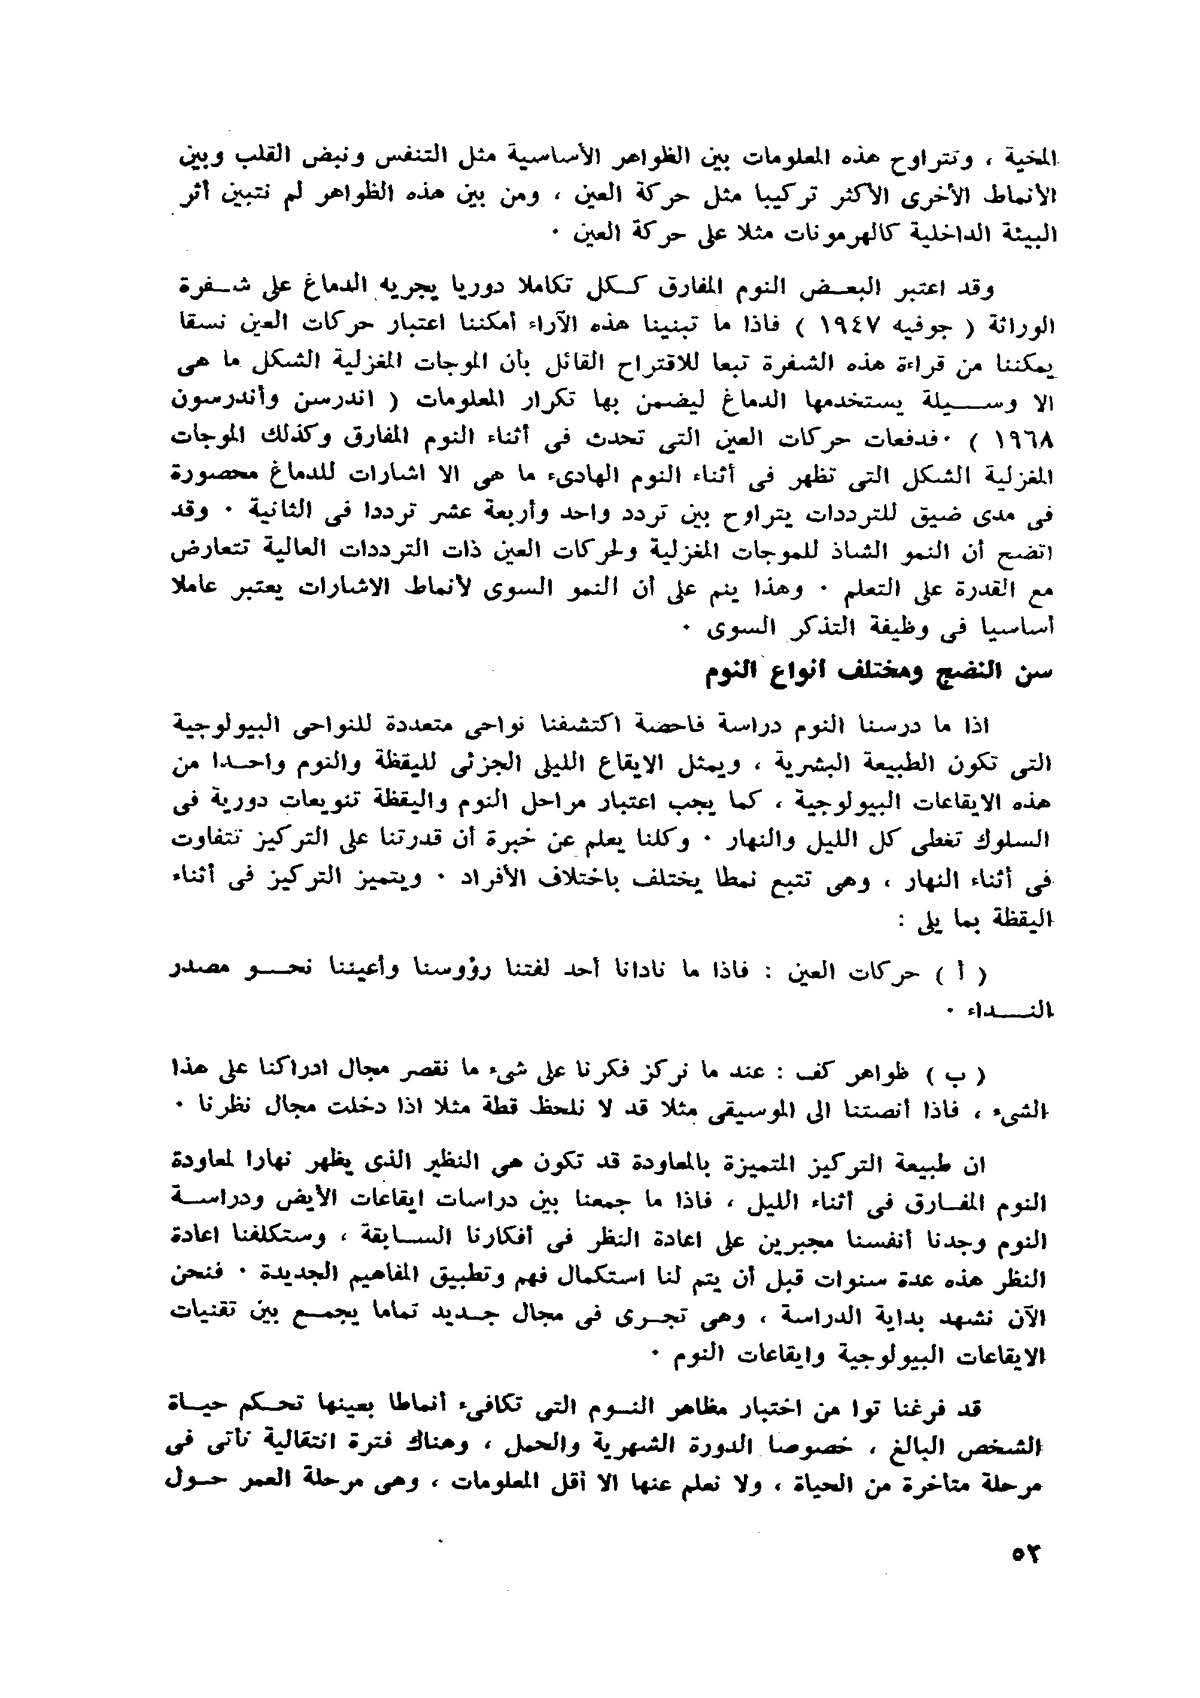 المخية ، وتتراوح هذه المعلومات بين الظواهر الأساسية مثل التنفس ونبض القلب وبين
الأنماط الأخرى الأكثر تركيبا مثل حركة العين ، ومن بين هذه الظواهر لم نتبين أثر
البيئة الداخلية كالهرمونات مثلا على حركة العين ٠
وقد اعتبر البعض النوم المفارق ككل تكاملا دوريا يجريه الدماغ على شفرة
الوراثة ( جوفيه ١٩٤٧ ) فاذا ما تبنينا هذه الآراء أمكننا اعتبار حركات العين نسقا
يمكننا من قراءة هذه الشفرة تبعا للاقتراح القائل بأن الموجات المغزلية الشكل ما هى
الا وسيلة يستخدمها الدماغ ليضمن بها تكرار المعلومات ( اندرسن وأندرسون
١٩٦٨ ) ٠ فدفعات حركات العين التى تحدث فى أثناء النوم المفارق وكذلك الموجات
المغزلية الشكل التى تظهر فى أثناء النوم الهادىء ما هى الا اشارات للدماغ محصورة
فى مدى ضيق للترددات يتراوح بين تردد واحد وأربعة عشر ترددا فى الثانية ٠ وقد
اتضح أن النمو الشاذ للموجات المغزلية ولحركات العين ذات الترددات العالية تتعارض
مع القدرة على التعلم ٠ وهذا ينم على أن النمو السوى لأنماط الاشارات يعتبر عاملا
أساسيا فى وظيفة التذكر السوى ٠
سن النضج ومختلف أنواع النوم
اذا ما درسنا النوم دراسة فاحصة اكتشفنا نواحى متعددة للنواحى البيولوجية
التى تكون الطبيعة البشرية ، ويمثل الايقاع الليلى الجزئى لليقظة والنوم واحدا من
هذه الايقاعات البيولوجية ، كما يجب اعتبار مراحل النوم واليقظة تنويعات دورية فى
السلوك تغطى كل الليل والنهار ٠ وكلنا يعلم عن خبرة أن قدرتنا على التركيز تتفاوت
فى أثناء النهار ، وهى تتبع نمطا يختلف باختلاف الأفراد ٠ ويتميز التركيز فى أثناء
اليقظة بما يلى :
( أ ) حركات العين : فاذا ما نادانا أحد لفتنا رؤوسنا وأعيننا نحو مصدر
النداء ٠
( ب ) ظواهر كف : عند ما نركز فكرنا على شىء ما نقصر مجال ادراكنا على هذا
الشىء ، فاذا أنصتنا الى الموسيقى مثلا قد لا نلحظ قطة مثلا اذا دخلت مجال نظرنا ٠
ان طبيعة التركيز المتميزة بالمعاودة قد تكون هى النظير الذى يظهر نهارا لمعاودة
النوم المفارق فى أثناء الليل ، فاذا ما جمعنا بين دراسات ايقاعات الأيض ودراسة
النوم وجدنا أنفسنا مجبرين على اعادة النظر فى أفكارنا السابقة ، وستكلفنا اعادة
النظر هذه عدة سنوات قبل أن يتم لنا استكمال فهم وتطبيق المفاهيم الجديدة ٠ فنحن
الآن نشهد بداية الدراسة ، وهى تجرى فى مجال جديد تماما يجمع بين تقنيات
الايقاعات البيولوجية وايقاعات النوم ٠
قد فرغنا توا من اختبار مظاهر النوم التى تكافىء أنماطا بعينها تحكم حياة
الشخص البالغ ، خصوصا الدورة الشهرية والحمل ، وهناك فترة انتقالية تأتى فى
مرحلة متأخرة من الحياة ، ولا نعلم عنها الا أقل المعلومات ، وهى مرحلة العمر حول
٥٢